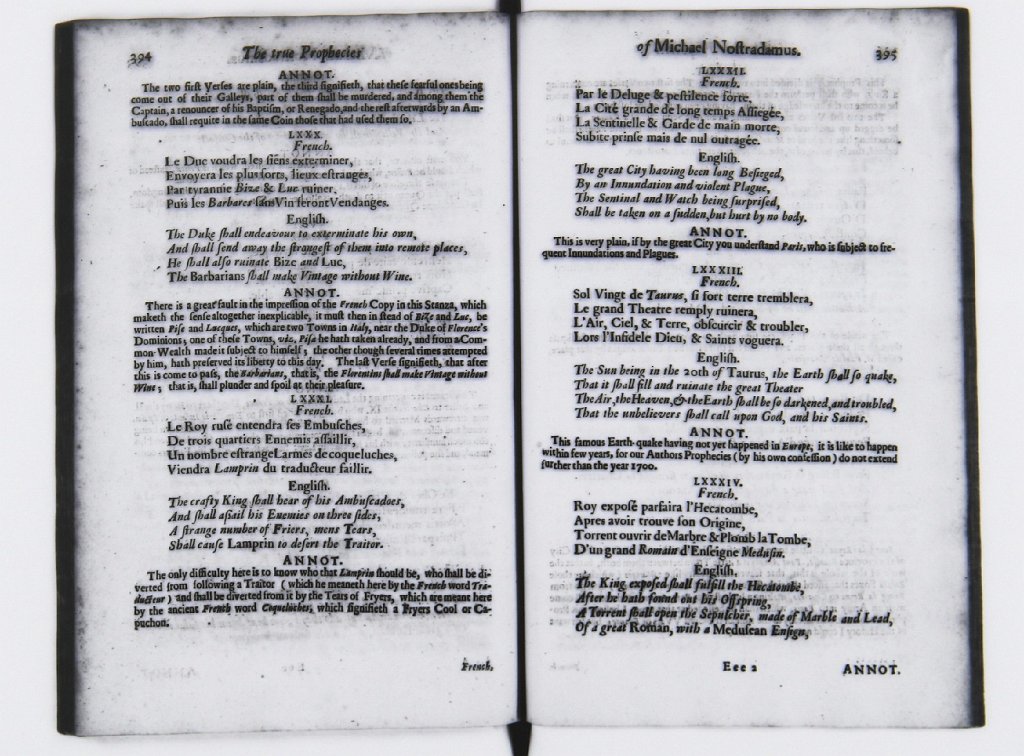 394 The true Prophecies
ANNOT.
The two first Verses are plain, the third signifieth, that these fearful ones being
come out of their Galleys, part of them shall be murdered, and among them the
Captain, a renouncer of his Baptism, or Renegado, and the rest afterwards by an Am-
buscado, shall requite in the same Coin those that had used them so.
LXXX.
French.
Le Duc voudra les siens exterminer,
Envoyera les plus forts, lieux estranges,
Par tyrannie Bize & Luc ruiner,
Puis les Barbares sans Vin feront Vendanges.
English.
The Duke shall endeavour to exterminate his own,
And shall send away the strangest of them into remote places,
He shall also ruinate Bize and Luc,
The Barbarians shall make Vintage without Wine.
ANNOT.
There is a great fault in the impression of the French Copy in this Stanza, which
maketh the sense altogether inexplicable, it must then in stead of Bize and Luc, be
written Pise and Lucques, which are two Towns in Italy, near the Duke of Florence's
Dominions; one of these Towns, viz. Pisa he hath taken already, and from a Com-
mon-Wealth made it subject to himself; the other though several times attempted
by him, hath preserved its liberty to this day. The last Verse signifieth, that after
this is come to pass, the Barbarians, that is, the Florentins shall make Vintage without
Wine; that is, shall plunder and spoil at their pleasure.
LXXXI.
French.
Le Roy rusé entendra ses Embusches,
De trois quartiers Ennemis assaillir,
Un nombre estrange Larmes de coqueluches,
Viendra Lamprin du traducteur faillir.
English.
The crafty King shall hear of his Ambuscadoes,
And shall assail his Enemies on three sides,
A strange number of Friers, mens Tears,
Shall cause Lamprin to desert the Traitor.
ANNOT.
The only difficulty here is to know who that Lamprin should be, who shall be di-
verted from following a Traitor (which he meaneth here by the French word Tra-
ducteur) and shall be diverted from it by the Tears of Fryers, which are meant here
by the ancient French word Coqueluches, which signifieth a Fryers Cool or Ca-
puchon.
French,
of Michael Nostradamus. 395
LXXXII.
French.
Par le Deluge & pestilence forte,
La Cité grande de long temps Assiegée,
La Sentinelle & Garde de main morte,
Subite prinse mais de nul outragée.
English.
The great City having been long Besieged,
By an Innundation and violent Plague,
The Sentinal and Watch being surprised,
Shall be taken on a sudden, but hurt by no body.
ANNOT.
This is very plain, if by the great City you understand Paris, who is subject to fre-
quent Innundations and Plagues.
LXXXIII.
French.
Sol Vingt de Taurus, si fort terre tremblera,
Le grand Theatre remply ruinera,
L'Air, Ciel, & Terre, obscurcir & troubler,
Lors l'Infidele Dieu, & Saints voguera.
English.
The Sun being in the 20th of Taurus, the Earth shall so quake,
That it shall fill and ruinate the great Theater
The Air, the Heaven, & the Earth shall be so darkened, and troubled,
That the unbelievers shall call upon God, and his Saints.
ANNOT.
This famous Earth-quake having not yet happened in Europe, it is like to happen
within few years, for our Authors Prophecies (by his own confession) do not extend
further than the year 1700.
LXXXIV.
French.
Roy exposé parfaira l'Hecatombe,
Apres avoir trouve son Origine,
Torrent ouvrir de Marbre & Plomb la Tombe,
D'un grand Romain d'Enseigne Medusin.
English.
The King exposed shall fulfill the Hecatombe,
After he hath found out his Offspring,
A Torrent shall open the Sepulcher, made of Marble and Lead,
Of a great Roman, with a Medusean Ensign,
Eee 2 ANNOT.